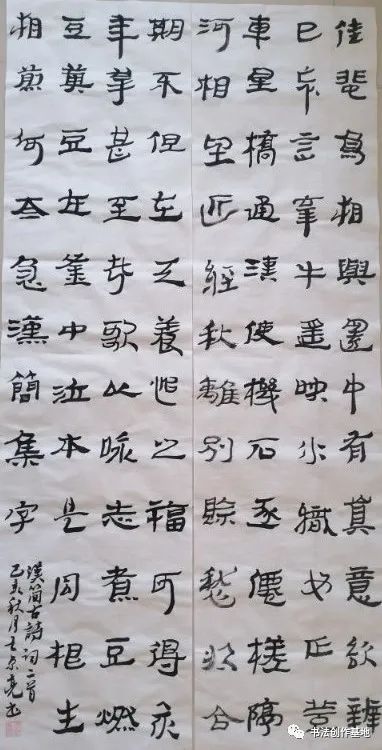 佳飛鳥相與還中有真意欲辯
已忘言牽牛遥映水織女正登
車星橋通漢使機石逐僊槎隔
河相望近經秋離別賒愁將今
期不但在天養怡之福可得永
年幸甚至哉歌以咏志煮豆燃
豆萁豆在釜中泣本是同根生
相煎何太急漢簡集字
漢簡古詩詞二首
己亥秋月京堯書
书法创作基地